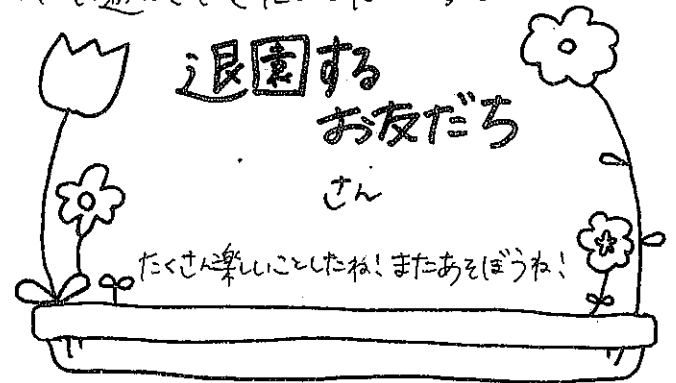 退園する
お友だち
さん
たくさん楽しいことしたね!またあそぼうね!